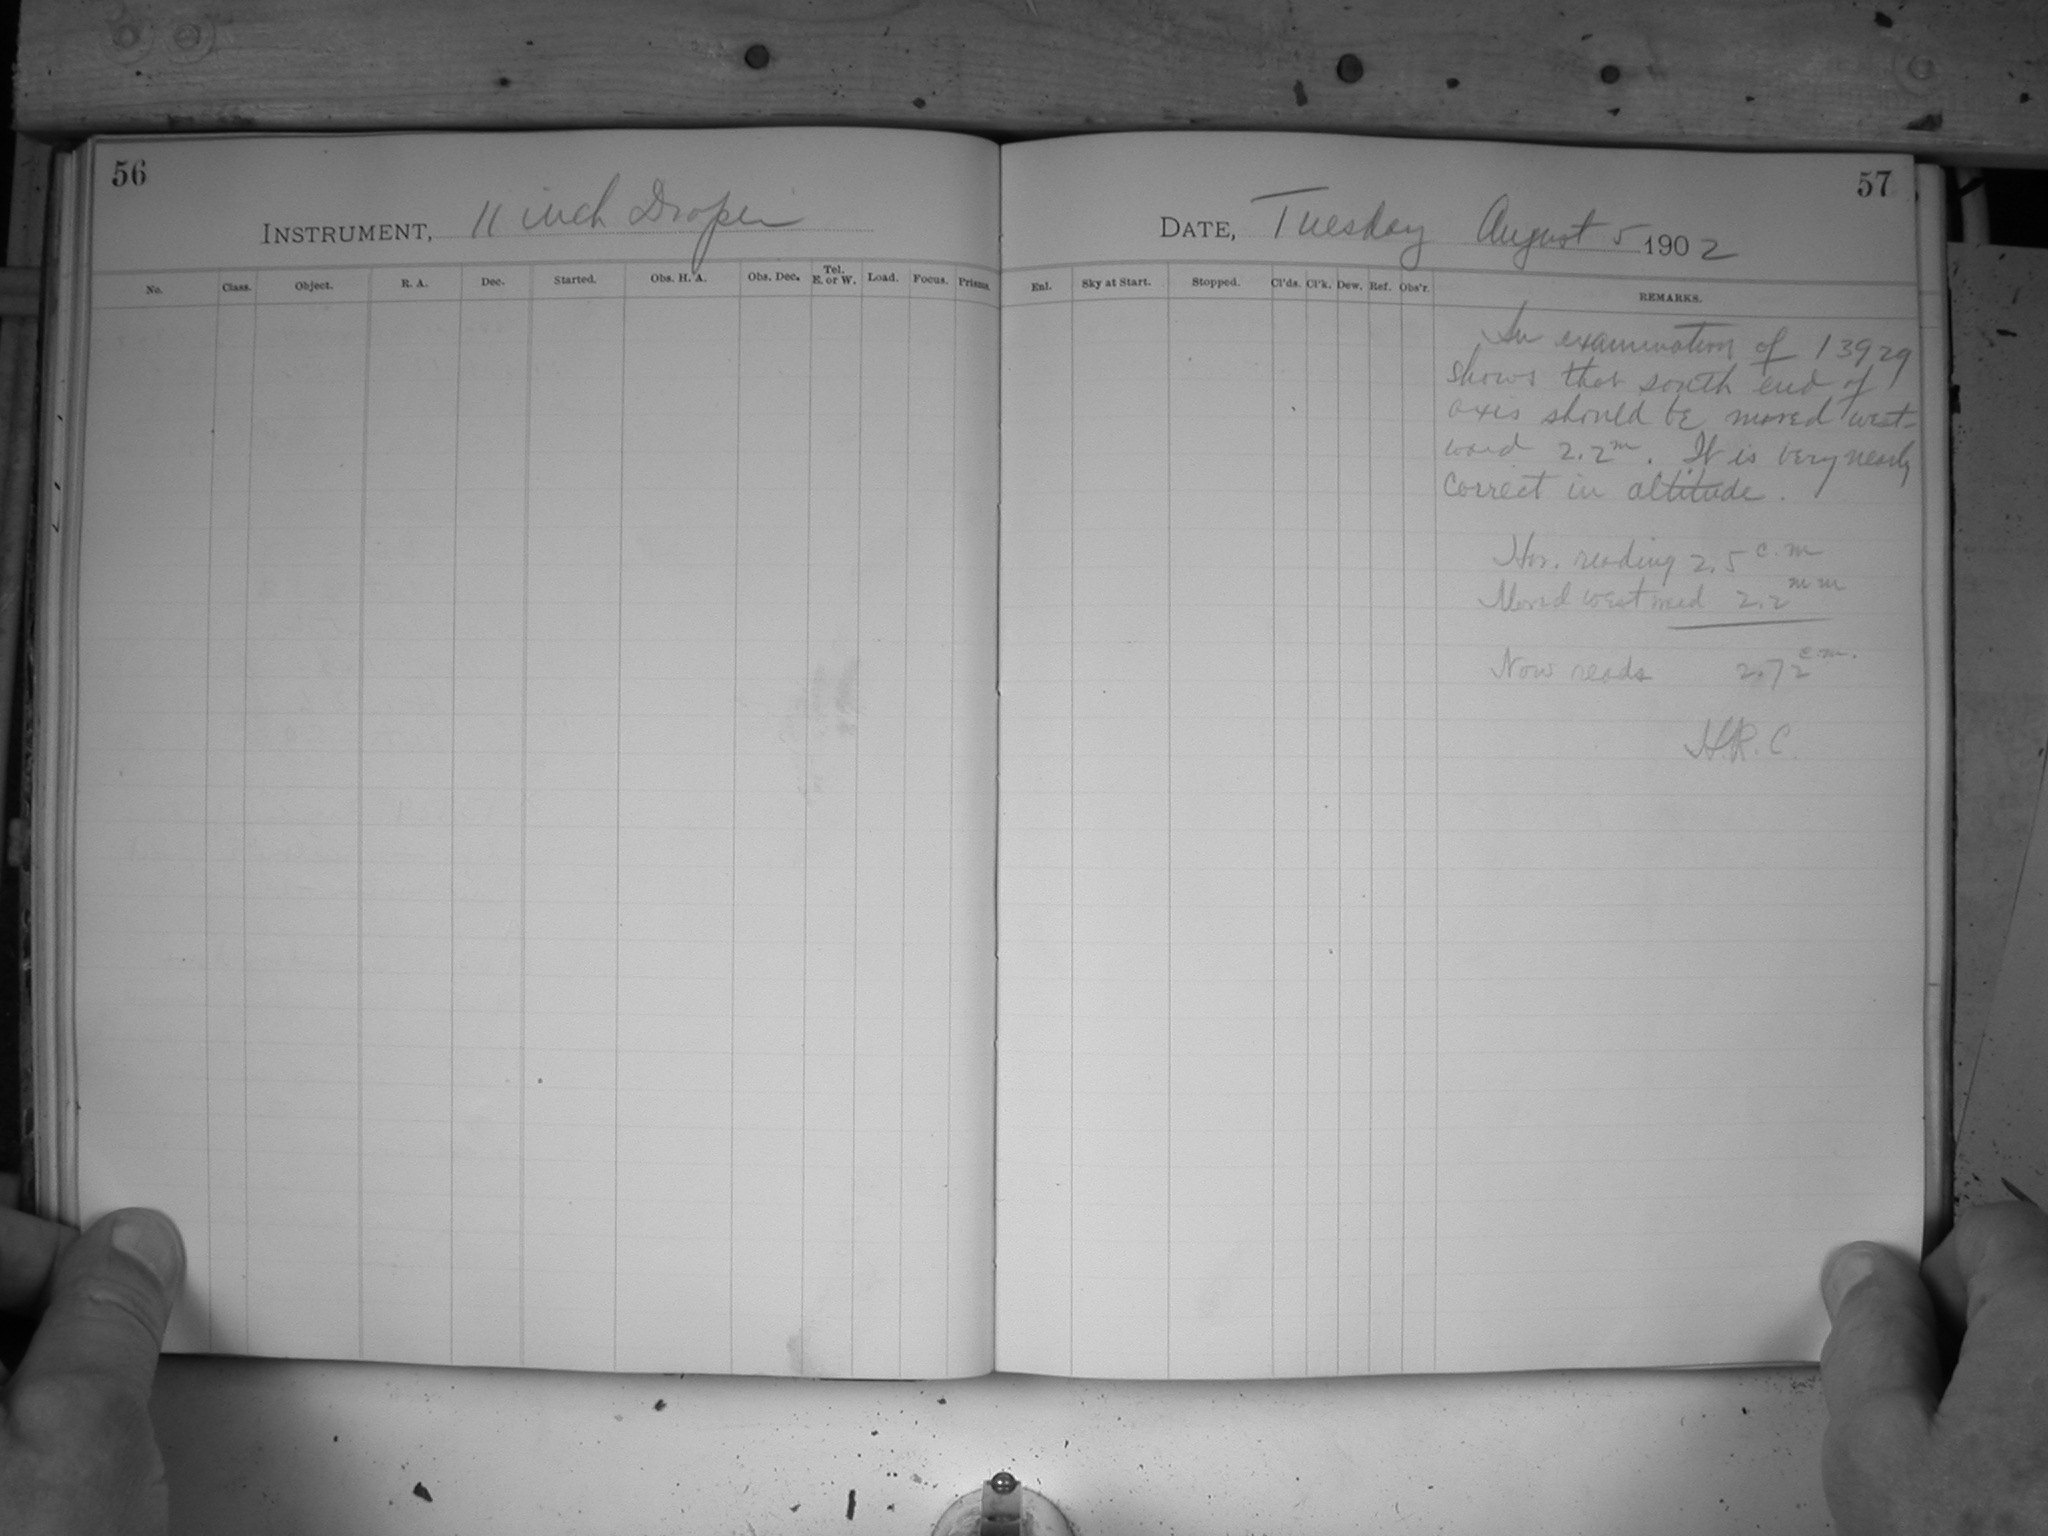 56
INSTRUMENT, 11 inch Draper
No. Class. Object. R. A. Dec. Started. Obs. H. A. Obs. Dec. Tel. E. or W. Load. Focus. Prisms.
57
DATE, Tuesday August 5 1902
Enl. Sky at Start. Stopped. Cl'ds. Cl'k. Dew. Ref. Obs'r. REMARKS.
An examination of 13929
shows that south end of
axis should be moved west-
ward 2.2m. It is very nearly
correct in altitude.
Hor. reading 2.5 c.m
Moved westward 2.2 mm
Now reads 2.72 c.m.
H.R.C.